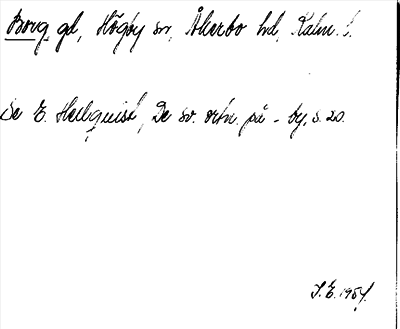 Borg gd, Högby sn, Åkerbo hd, Kalm. l.
Se E. Hellquist, De sv. ortn. på -by, s. 20.
S.E. 1954.